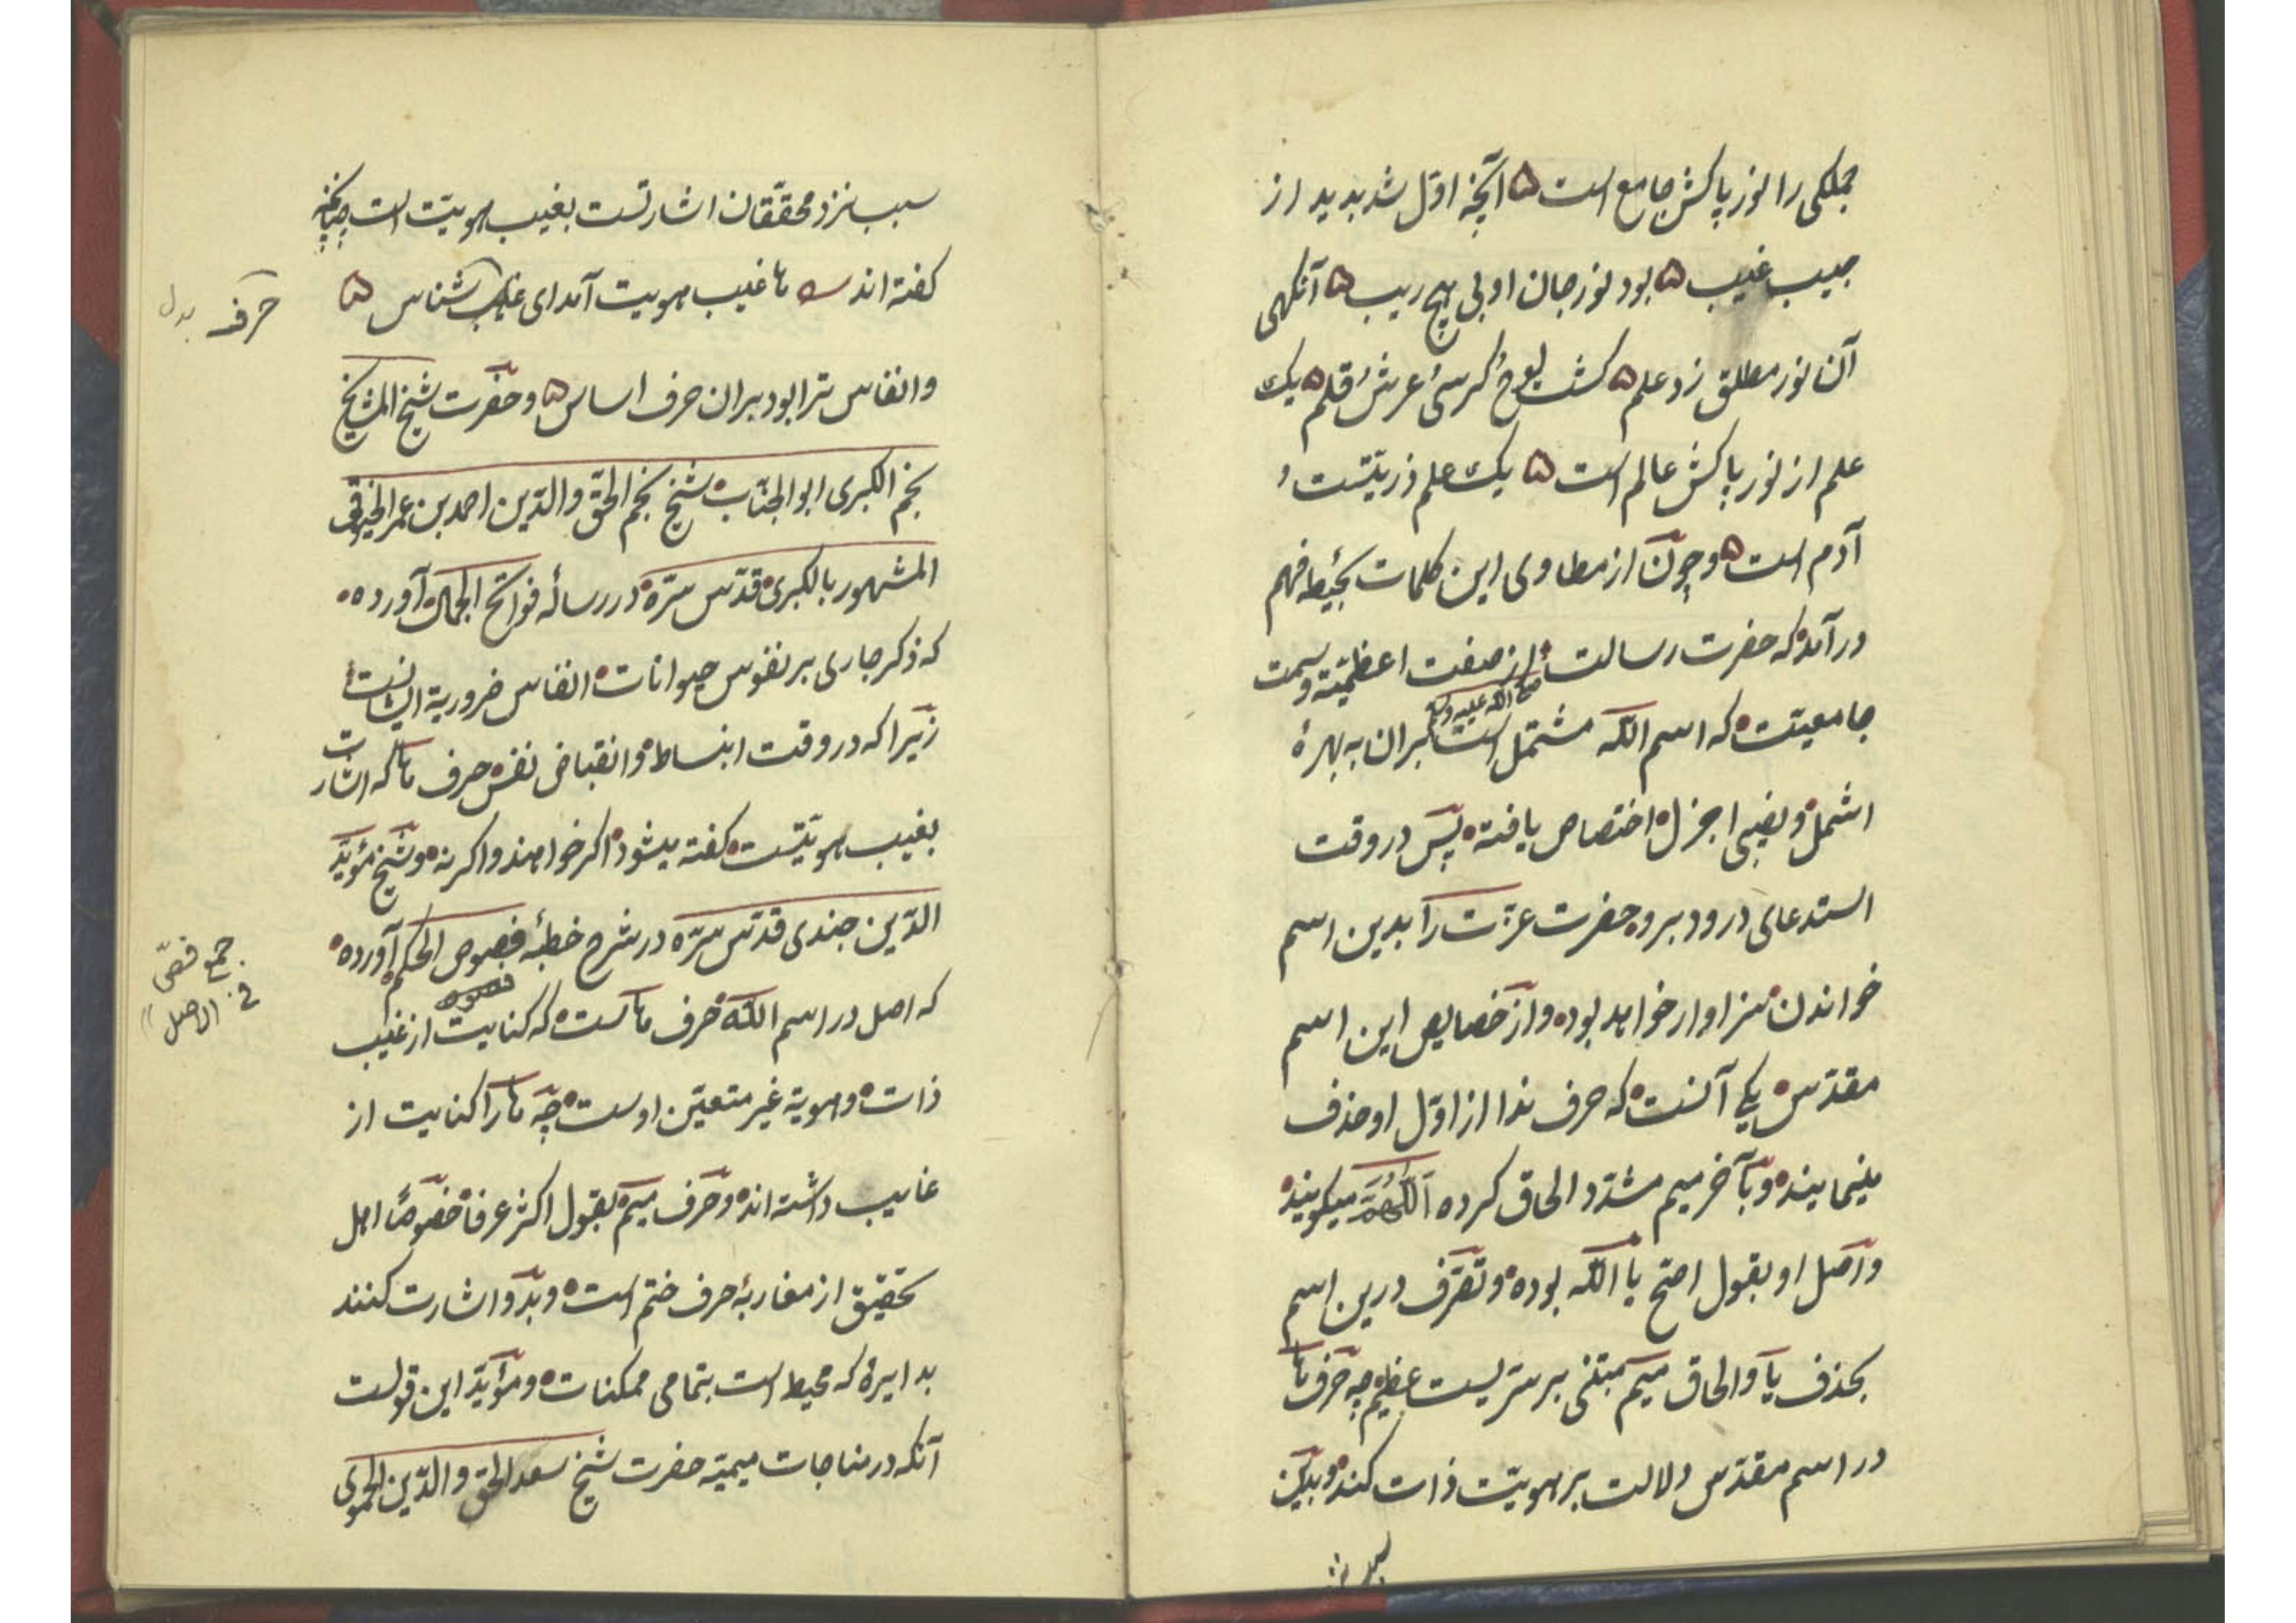 جملگی را نور پاکش جامع است ۵ آنچه اول شد بدید از
جیب غیب ۵ بود نور جان او بی هیچ ریب ۵ آنکهی
آن نور مطلق زد علم ۵ کشت لوح و کرسی و عرش و قلم ۵ یک
علم از نور پاکش عالم است ۵ یک علم ذریتست و
آدم است ۵ و چون از مطاوی این کلمات بحیطه فهم
درآمد که حضرت رسالت از صفت اعظمیّته و سمت
صلی الله علیه وسلم
جامعیّت که اسم اللّه مشتمل است بران به بهرهٔ
اشمل و نصیبی اجزل اختصاص یافته پس در وقت
استدعای درود برو حضرت عزّت را بدین اسم
خواندن سزاوار خواهد بود و از خصایص این اسم
مقدّس یکی آنست که حرف ندا از اوّل او حذف
مینمایند و بآخر میم مشدّد الحاق کرده اَللّٰهُمَّ میکویند
و اصل او بقول اصح یا اللّه بوده و تصرّف درین اسم
بحذف یا و الحاق میم مبتنی بر سرّیست عظیم چه حرف ها
در اسم مقدّس دلالت بر هویّت ذات کند و بدین
سبب نزد محققان اشارتست بغیب هویّت است چنانچه
کفته اند ها غیب هویت آمد ای غیب شناس ۵
حرف بدل
وانفاس ترا بود بران حرف اساس ۵ و حضرت شیخ المشایخ
نجم الکبری ابو الجنّاب شیخ نجم الحقّ والدّین احمد بن عمر الخیوقی
المشهور بالکبری قدّس سرّه در رسالهٔ فواتح الجمال آورده
که ذکر جاری بر نفوس حیوانات انفاس ضروریهٔ ایشانست
زیرا که در وقت انبساط و انقباض نفس حرف ها که اشارت
بغیب هویّتست کفته میشود اکر خواهند و اکر نه و شیخ مؤیّد
الدّین جندی قدّس سرّه در شرح خطبهٔ فصوص الحکم آورده
جمع فصّی
فی الاصل
که اصل در اسم اللّه حرف هاست که کنایت از غیب
ذات و هویهٔ غیر متعیّن اوست چه ها را کنایت از
غایب داشته اند و حرف میم بقول اکثر عرفا خصوصًا اهل
تحقیق از مغاربهٔ حرف ختم است و بدو اشارت کنند
بدایرهٔ که محیط است بتمامی ممکنات و مؤیّد این قولست
آنکه در مناجات میمیّه حضرت شیخ سعد الحق والدّین الحموی